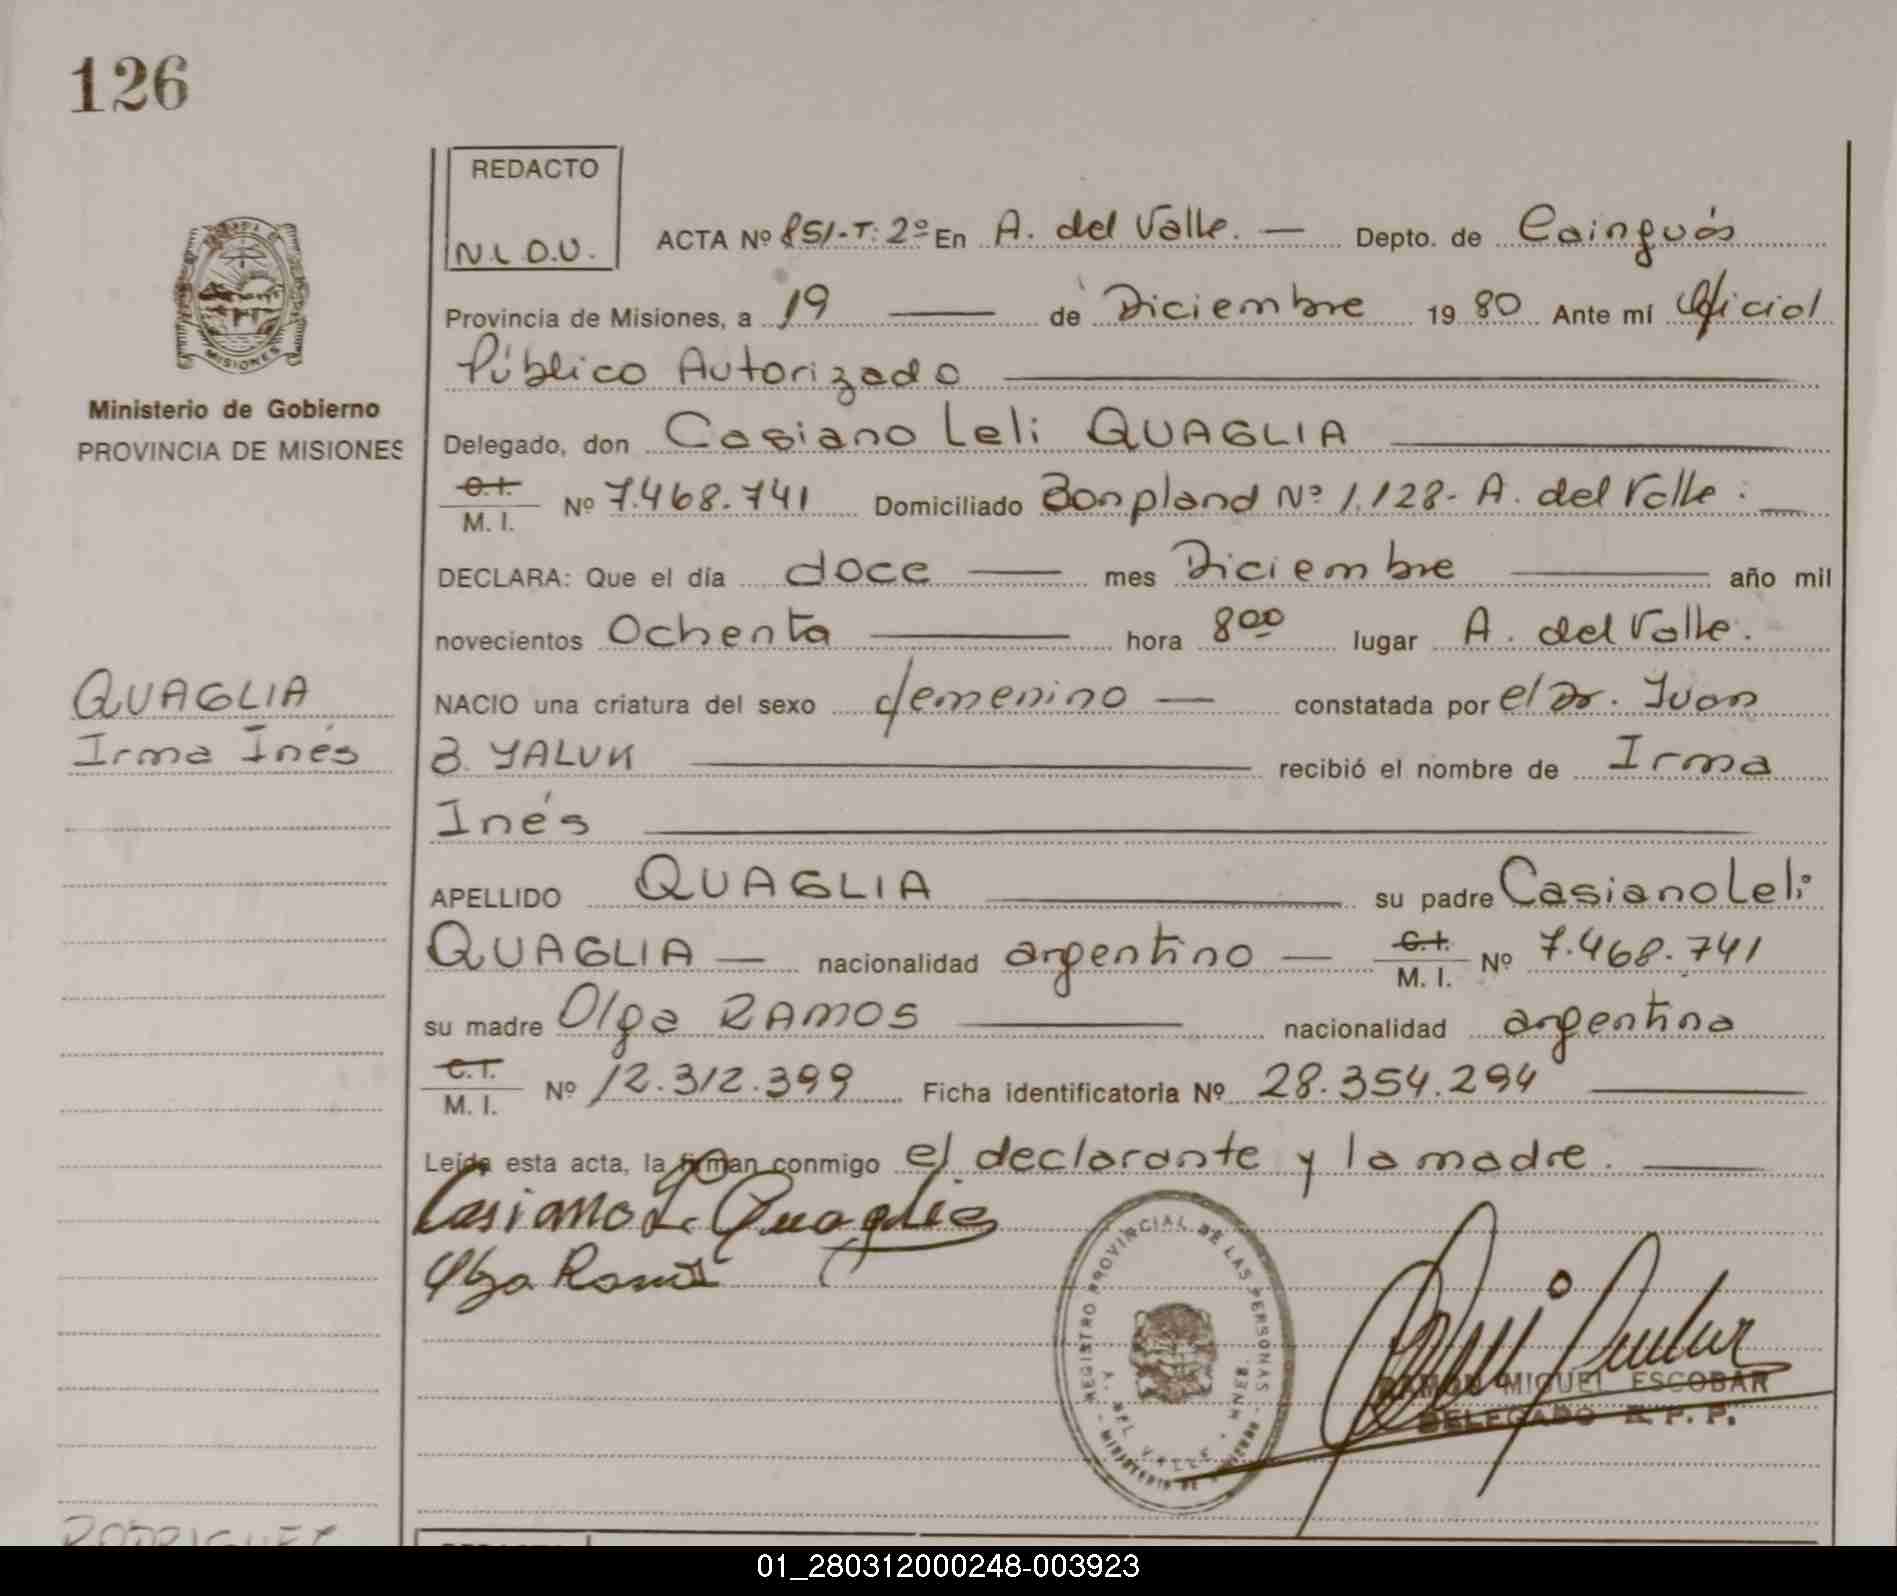 126
REDACTO
N.L.O.U.
ACTA Nº 851-T: 2º En A. del Valle. — Depto. de Cainguás
Provincia de Misiones, a 19 — de Diciembre 1980 Ante mí Oficial
Público Autorizado
MISIONES
Ministerio de Gobierno
PROVINCIA DE MISIONES
Delegado, don Casiano Leli QUAGLIA
C.I.
M. I. Nº 7.468.741 Domiciliado Bonpland Nº 1.128- A. del Valle.
DECLARA: Que el día doce — mes Diciembre — año mil
novecientos Ochenta — hora 8 00 lugar A. del Valle.
QUAGLIA
Irma Inés
NACIO una criatura del sexo femenino — constatada por el Dr. Juan
B. YALUK — recibió el nombre de Irma
Inés
APELLIDO QUAGLIA — su padre Casiano Leli
QUAGLIA — nacionalidad argentino — C.I.
M. I. Nº 7.468.741
su madre Olga RAMOS — nacionalidad argentina
C.I.
M. I. Nº 12.312.399 Ficha identificatoria Nº 28.354.294
Leída esta acta, la firman conmigo el declarante y la madre.
Casiano L. Quaglia
Olga Ramos
REGISTRO PROVINCIAL DE LAS PERSONAS
A. DEL VALLE - MNES.
MINISTERIO DE GOBIERNO
RAMON MIGUEL ESCOBAR
DELEGADO R. P. P.
RODRIGUEZ
REDACTO
01_280312000248-003923